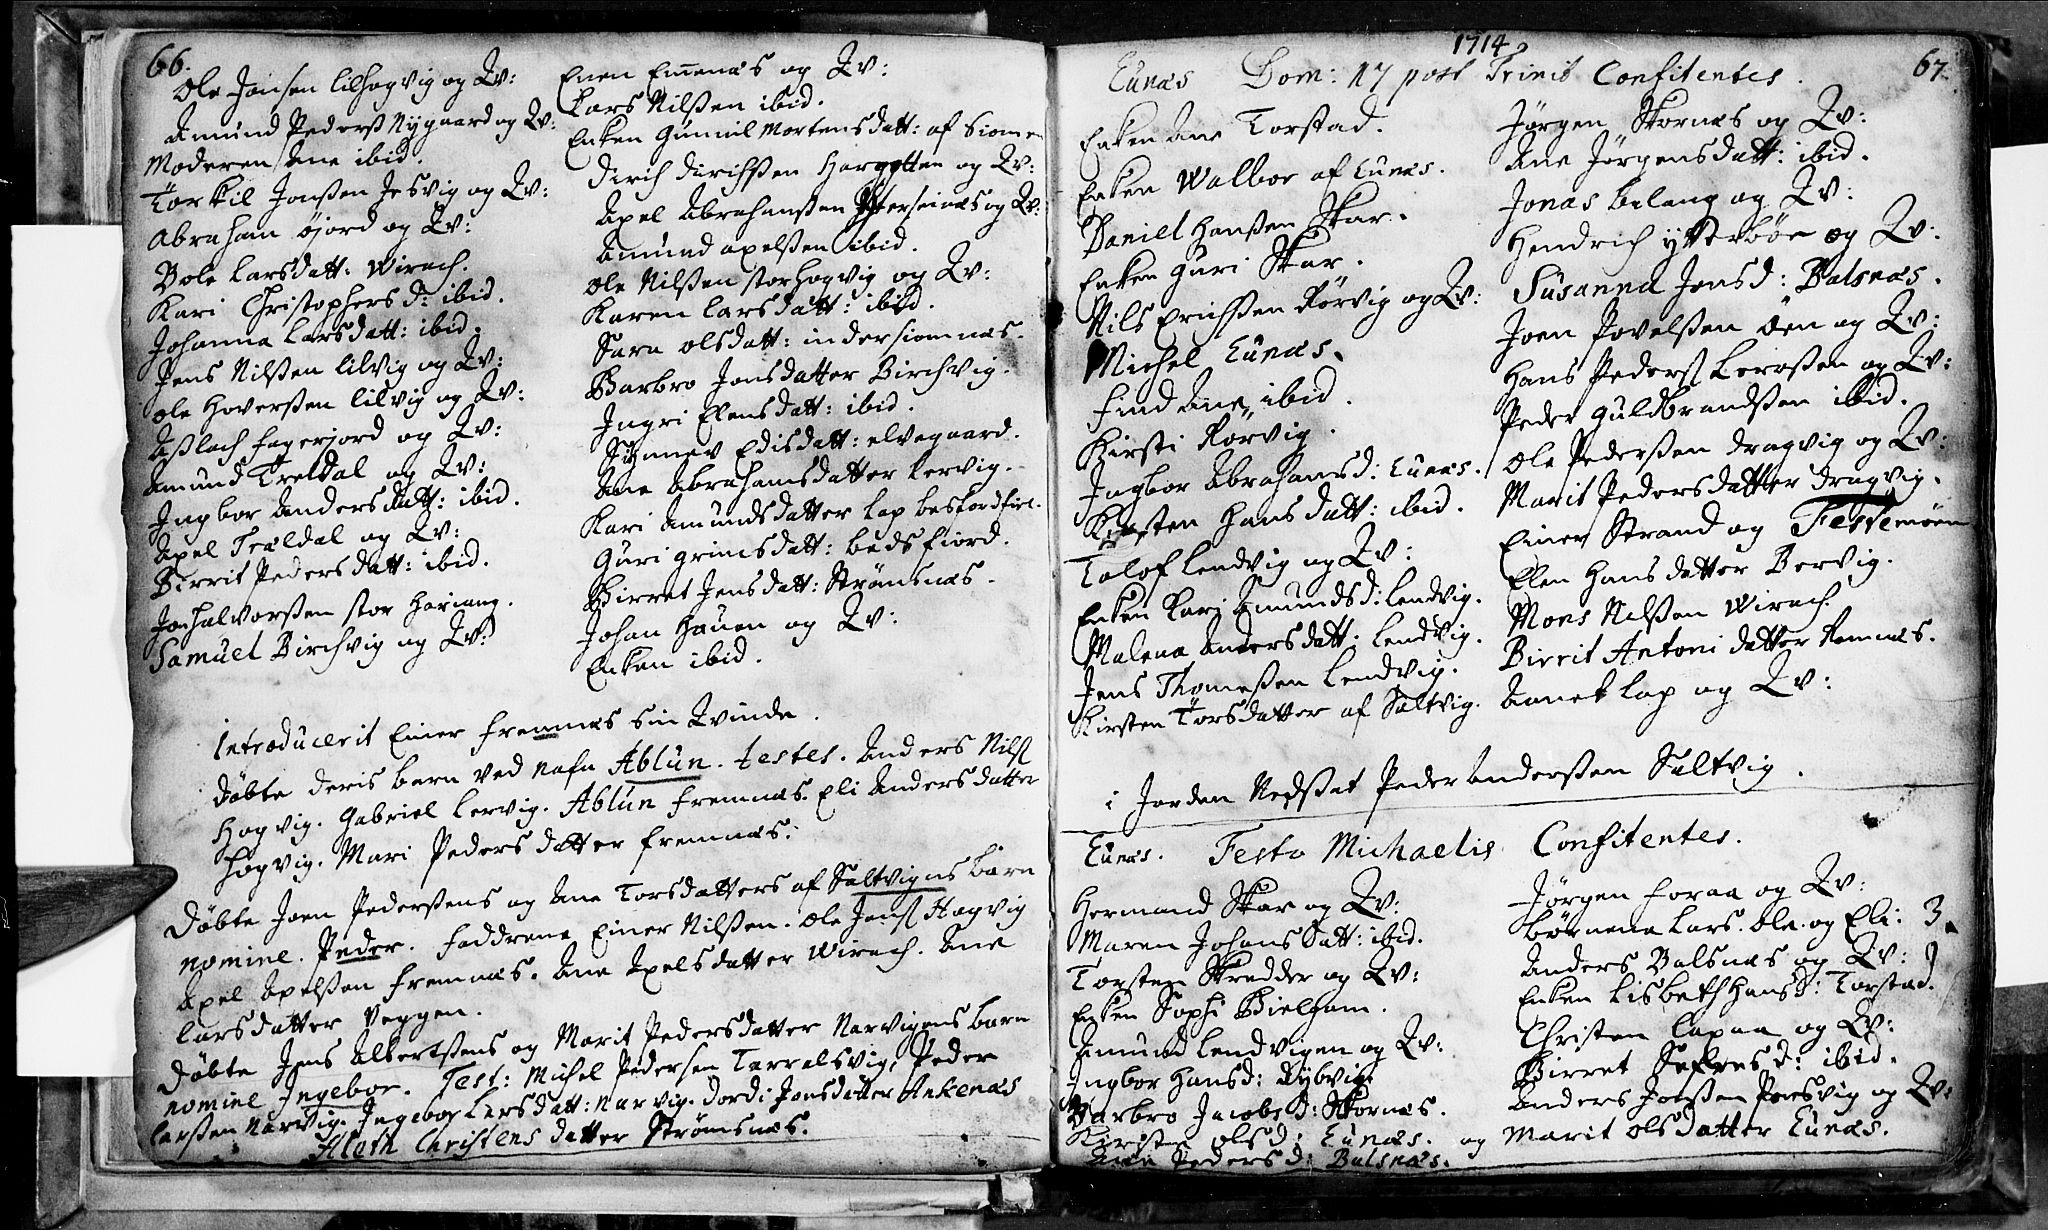 66.
Ole Jonsen lilhogvig og Qv:
Amund Pederß Nygaard og Qv:
Moderen Ane ibid.
Torkil Jonßen Jesvig og Qv:
Abraham øjord og Qv:
Bole Larsdatt: Wirach.
Kari Christophersd: ibid.
Johanna Larsdatt: ibid.
Jens Nilßen lilvig og Qv:
Ole Hoverßen lilvig og Qv:
Aßlach fagerjord og Qv:
Amund Treldal og Qv:
Ingbor Andersdatt: ibid.
Axel Trældal og Qv:
Birrit Pedersdatt: ibid.
Jon halvorßen stor Hariang.
Samuel Birchvig og Qv:
Enen Emenæs og Qv:
Lars Nilßen ibid.
Enken Gunnil Mortensdatt: af Siomen
Dirich Dirichßen Hargotten og Qv:
Axel Abrahamßen og Qv:
Amund axelßen ibid.
Ole Nilßen storhogvig og Qv:
Karen Larsdatt: ibid.
Sara olsdatt: indersiomnæs.
Barbro Jonsdatter Birchvig.
Ingri Elensdatt: ibid.
Synnev Edisdatt: elvegaard.
Ane Abrahamsdatter Lervig.
Kari Amundsdatter lap
Guri grimsdatt: bedsfiord.
Birret Jensdatt: Strømsnæs.
Johan Hauen og Qv:
Enken ibid.
Introducerit Einer fremnæs sin Qvinde.
Døbte deris barn ved nafn Ablun. testes. Anders Nilß
Hogvig. Gabriel Lervig. Ablun fremnæs. Eli Andersdatter
hogvig. Mari Pedersdatter fremnæs.
Døbte Joen Pederßens og Ane Torsdatters af Saltvigens barn
nomine. Peder. faddrene Einer Nilßen. Ole Jensß Hogvig
Axel Axelßen fremnæs. Ane Axelsdatter Wirach. Ane
larsdatter Veggen.
Døbte Jens Albertßens og Marit Pedersdatter Narvigens barn
nomine Ingebor. Test: Michel Pedersen Tarralsvig, Peder
larßen Narvig. Ingebor Larsdatt: narvig. Dordi Jonsdatter Ankenæs
Aleth Christensdatter Strømsnæs.
1714
67.
Eunæs Dom: 17 post Trinit Confitentes.
Enken Ane Torstad.
Enken Walbor af Eunæs.
Daniel Hanßen Skar.
Enken Guri Skar.
Nils Erichßen Rørvig og Qv:
Michel Eunæs.
find Ane ibid.
Kirsti Rørvig.
Ingbor Abrahamsd: Eunæs.
Kirsten Hansdatt: ibid.
Tolof Lendvig og Qv:
Enken Kari Amundsd: Lendvig.
Malena Andersdatt: Lendvig.
Jens Thomeßen Lendvig.
Kirsten Torsdatter af Saltvig.
Jørgen Skornæs og Qv:
Ane Jørgensdatt: ibid.
Jonas belang og Qv:
Hendrich ytterbøe og Qv:
Susanna Jonsd: Balsnæs.
Joen Povelßen Øen og Qv:
Hans Pederß Leroßen og Qv:
Peder Guldbrandßen ibid.
Ole Pederßen Dragvig og Qv:
Marit Pedersdatter Dragvig.
Einer Strand og Festemøen
Elen Hansdatter Bervig.
Mons Nilßen Wirach.
Birrit Antonidatter Remnæs.
Annet lap og Qv:
i Jorden Nedsat Peder Anderßen Saltvig.
Eunæs. Festo Michaelis Confitentes.
Hermand Skar og Qv:
Maren Johansdatt: ibid.
Torsten Skredder og Qv:
Enken Sophi Bielgam.
Amund Lendvigen og Qv:
Ingbor Hansd: Rybvig
Barbro Jacobsd: Skornæs.
Kirsten olsd: Eunæs. og
Ane Pedersd: Balsnæs.
Jørgen foraa og Qv:
børnene Lars. Ole. og Eli: 3.
Anders Balsnæs og Qv:
Enken Lisbeth Hansd: Torstad.
Christen Lapaa og Qv:
Birret d: ibid.
Anders Jonßen Porsvig og Qv:
Marit olsdatter Eunæs.